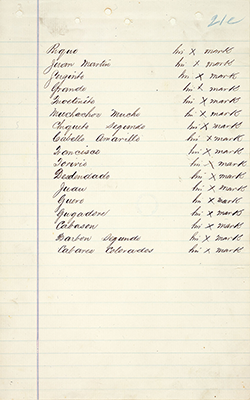 21C
Roque his x mark
Juan Martin his x mark
his x mark
Grande his x mark
his x mark
Muchacho Mucho his x mark
Chiquito Segundo his x mark
Cabello Amarillo his x mark
Francisco his x mark
his x mark
Desdendado his x mark
Juan his x mark
Guero his x mark
Jugadore his x mark
Cabason his x mark
Barbon Segundo his x mark
Cabares Colorados his x mark